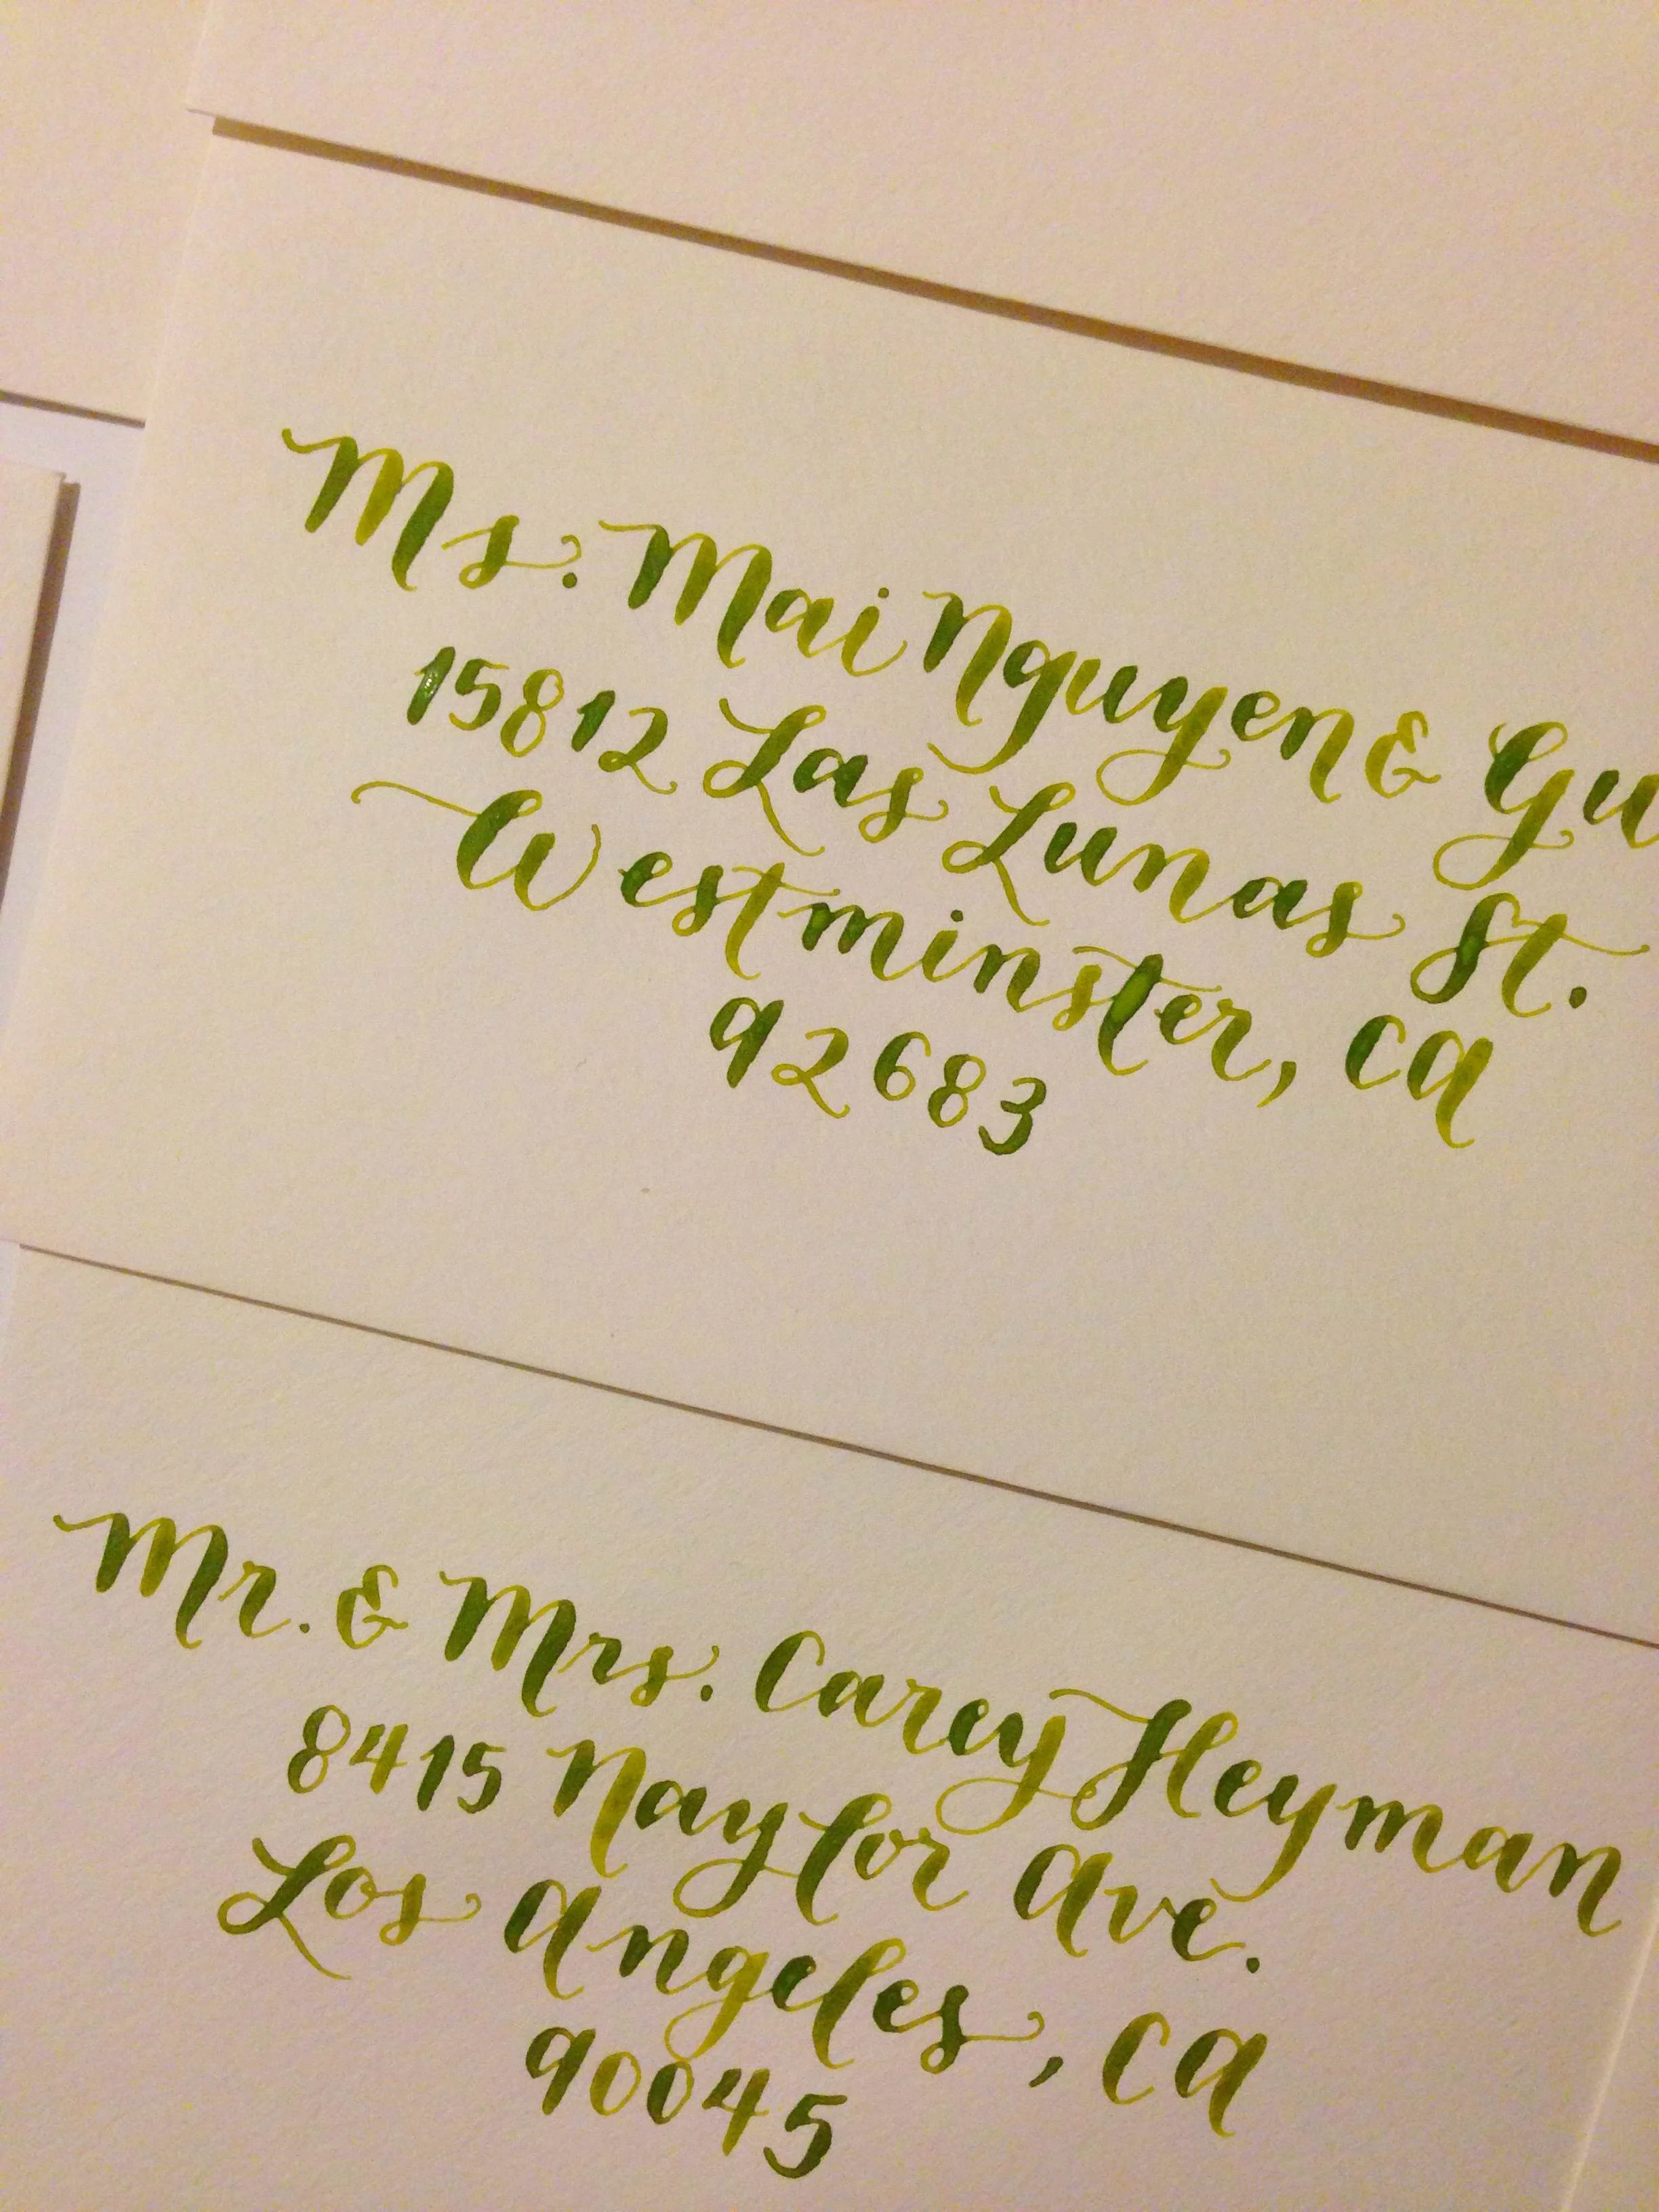 Ms. Mai Nguyen & Gu
15812 Las Lunas St.
Westminster, CA
92683
Mr. & Mrs. Carey Heyman
8415 Naylor Ave.
Los Angeles, CA
90045